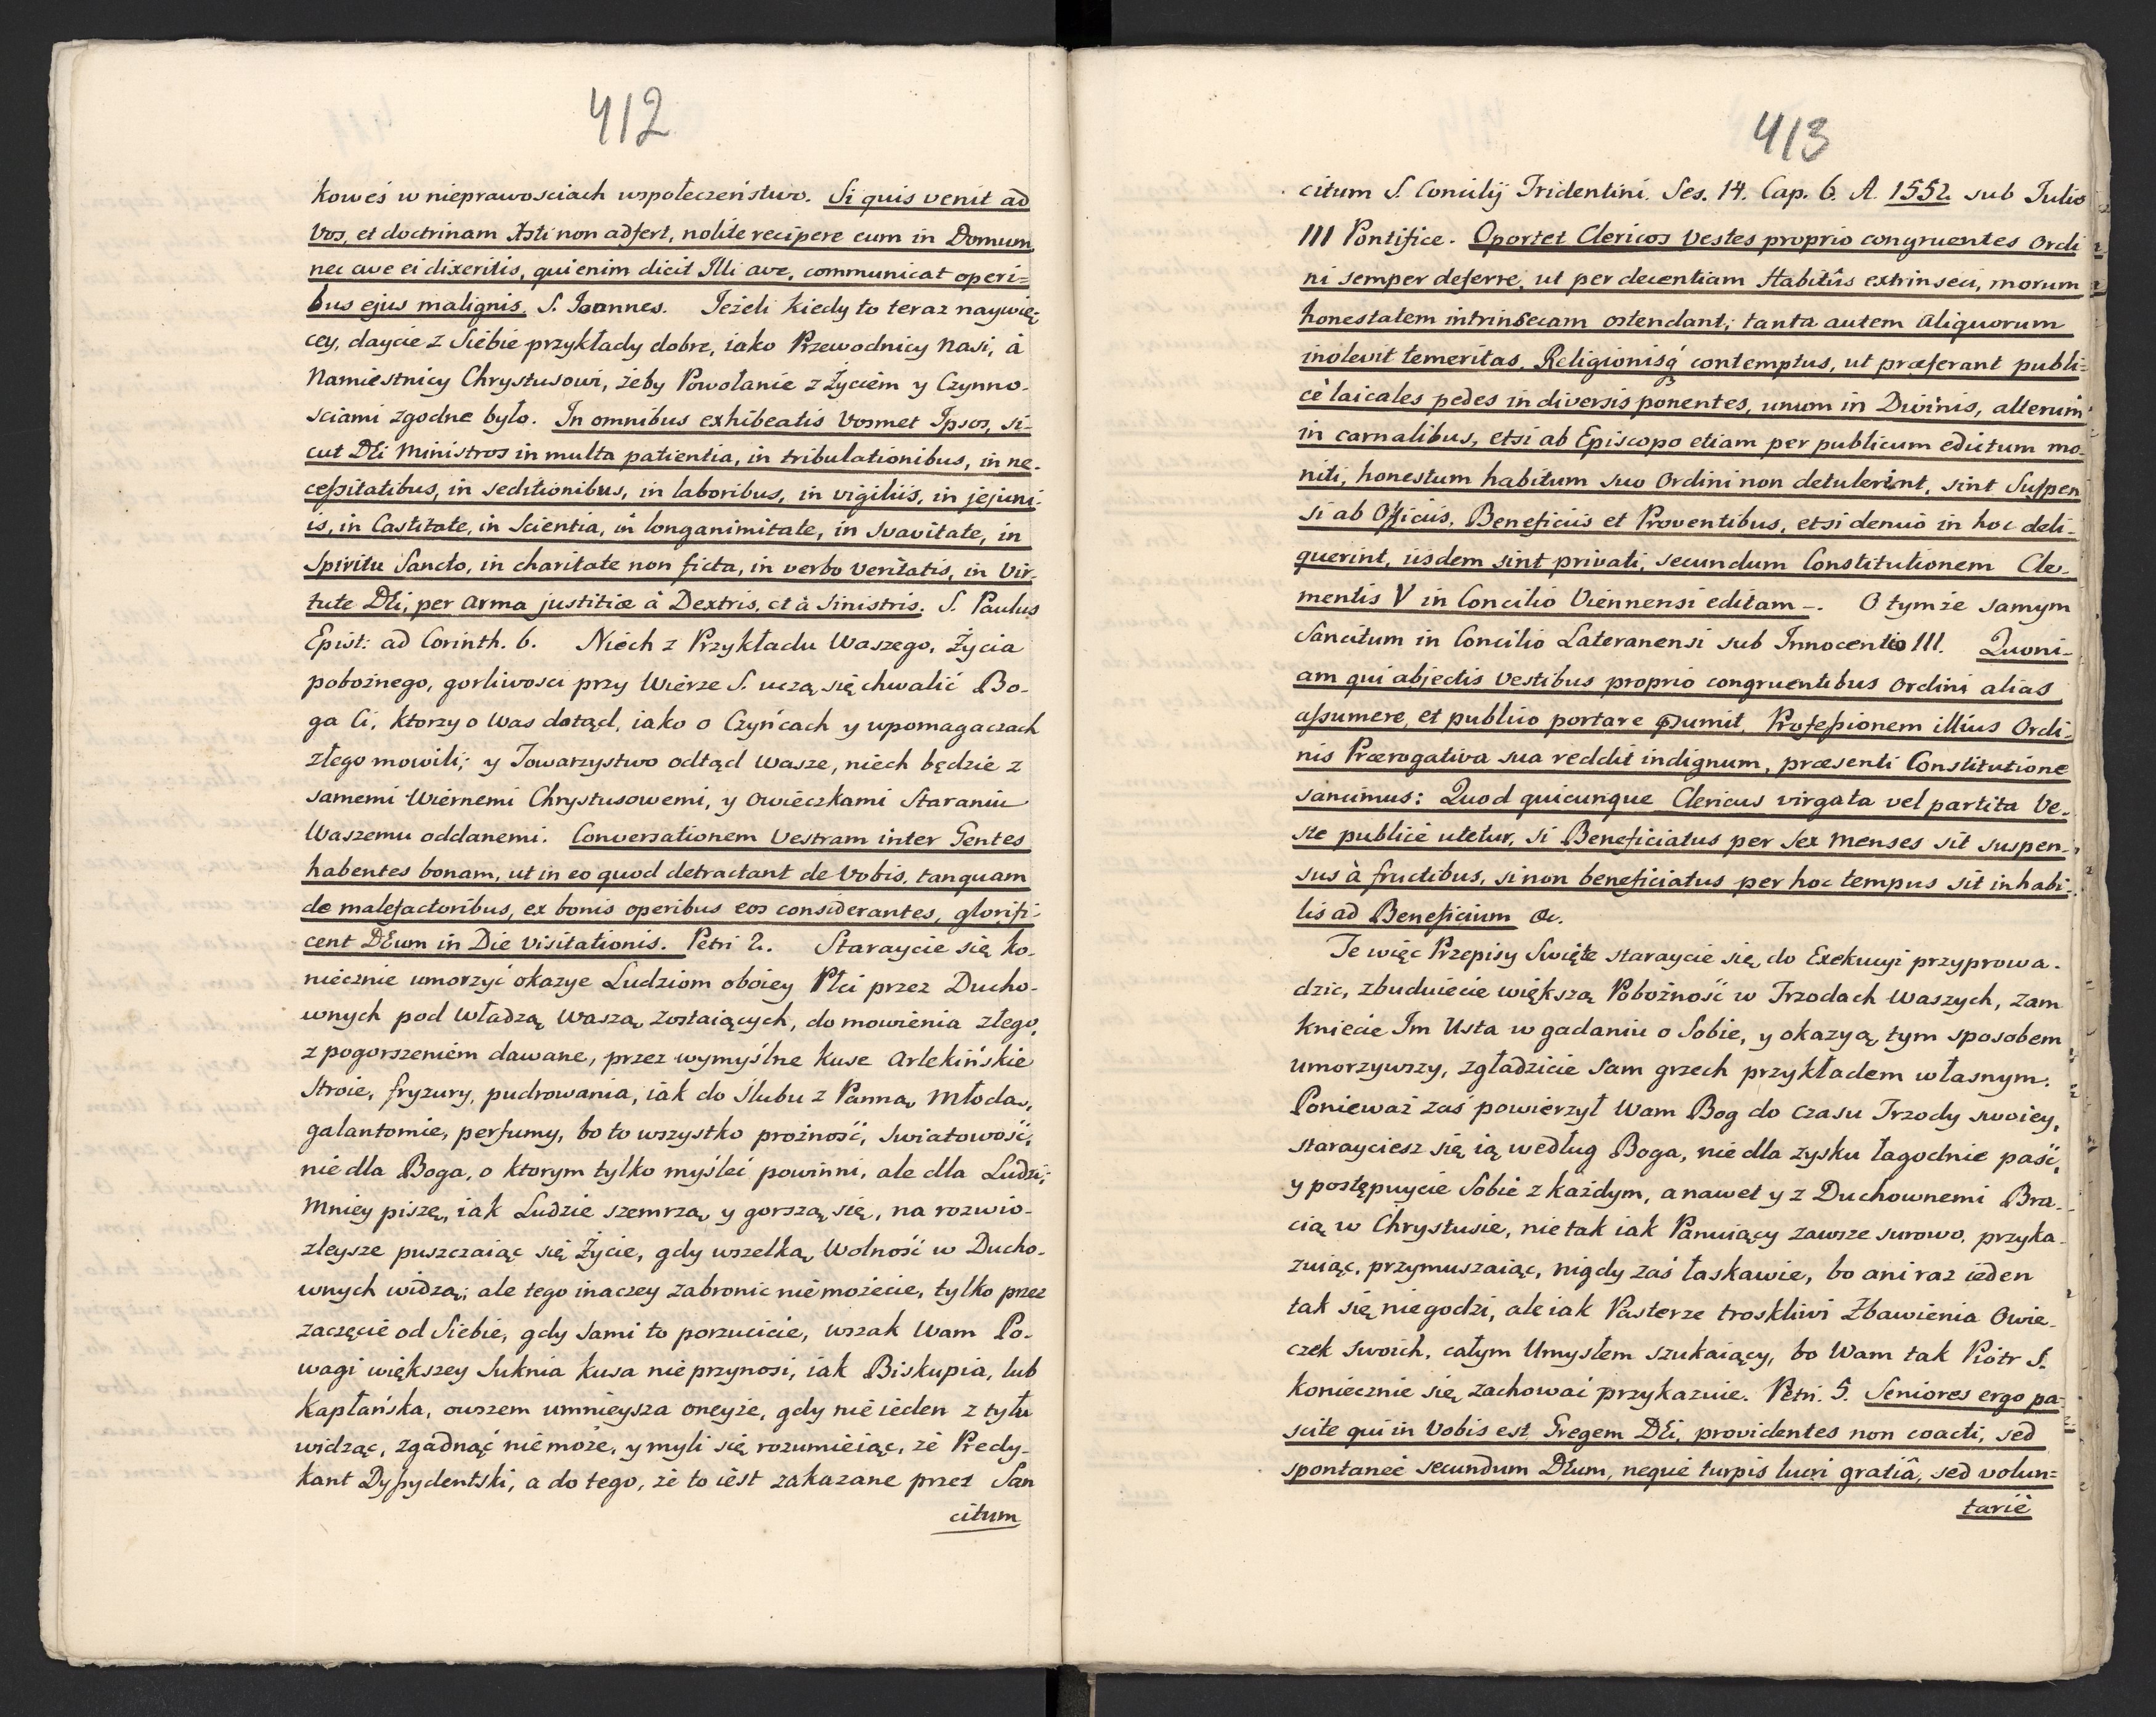 412
kowéś w nieprawosciach wspołeczeństwo. Si quis venit ad
Vos, et doctrinam Isti non adfert, nolite recipere eum in Domum,
nec ave ei dixeritis, qui enim dicit Illi ave, communicat operi=
bus ejus malignis. S. Ioannes. Ieżeli kiedy to teraz naywię=
cey, daycie z Siebie przykłady dobre, iako Przewodnicy Nasi, à
Namiestnicy Chrystusowi, żeby Powołanie z Życiem y Czynno-
sciami zgodne było. In omnibus exhibeatis Vosmet Ipsos, si-
cut DEi Ministros in multa patientia, in tribulationibus, in ne-
ceßitatibus, in seditionibus, in laboribus, in vigiliis, in jejuni-
is, in Castitate, in Scientia, in longanimitate, in suavitate, in
Spiritu Sancto, in charitate non ficta, in verbo veritatis, in Vir-
tute DEi, per Arma justitiæ à Dextris, et à Sinistris. S. Paulus
Epist: ad Corinth. 6. Niéch z Przykładu Waszego, Życia
pobożnego, gorliwosci przy Wierze S. uczą się chwalić Bo-
ga Ci, ktorzy o Was dotąd, iako o Czyńcach y upomagaczach
złego mowili; y Towarzystwo odtąd Wasze, niech będzie z
samemi Wiérnemi Chrystusowemi, y Owiéczkami Staraniu
Waszemu oddanemi. Conversationem Vestram inter Gentes
habentes bonam, ut in eo quod detractant de Vobis, tanquam
de malefactoribus, ex bonis operibus eos considerantes, glorifi-
cent DEum in Die Visitationis. Petri 2. Staraycie się ko-
niécznie umorzyć okazye Ludziom oboiey Płci przez Ducho-
wnych pod Władzą Waszą zostaiących, do mowienia złego,
z pogorszeniém dawane, przez wymyślne kuse Arlekińskie
Stroie, fryzury, pudrowania, iak do Ślubu z Panną Młodą,
galantomie, perfumy, bo to wszystko prożność, Swiatowość,
nie dla Boga, o ktorym tylko myśleć powinni, ale dla Ludzi;
Mniey piszę, iak Ludzie szemrzą y gorszą się, na rozwio-
zleysze puszczaiąc się Życie, gdy wszelką Wolność w Ducho-
wnych widzą; ale tego inaczey zabronic niémożecie, tylko przez
zaczęcie od Siebie, gdy Sami to porzucicie, wszak Wam Po-
wagi większey Suknia kusa nie przynosi, iak Biskupia, lub
Kapłańska, owszem umnieysza oneyże, gdy nié iéden z tyłu
widząc, zgadnąć niémoże, y myli się rozumieiąc, że Predy-
kant Dyßydentski, a do tego, że to iést zakazane przez San
citum
413
citum S. Concilij Tridentini. Ses. 14. Cap. 6. A. 1552. sub Iulio
III Pontifice. Oportet Clericos Vestes proprio congruentes Ordi
ni semper deferre, ut per decentiam Habitûs extrinseci, morum
honestatem intrinsecam ostendant; tanta autem Aliquorum
inolevit temeritas, Religionisq́ contemptus, ut præferant publi=
cè laicales pedes in diversis ponentes, unum in Divinis, alterum
in carnalibus, etsi ab Episcopo etiam per publicum edictum mo-
niti, honestum habitum suo Ordini non detulerint, sint Suspen
si ab Officiis, Beneficiis et Proventibus, etsi denuò in hoc deli-
querint, iisdem sint privati, secundum Constitutionem Cle-
mentis V in Concilio Viennensi editam —. O tymże samym
Sancitum in Concilio Lateranensi sub Innocentio III. Quoni-
am qui abjectis Vestibus proprio congruentibus Ordini alias
aßumere, et publico portare sumit, Profeßionem illius Ordi-
nis Prærogativa sua reddit indignum, præsenti Constitutione
sancimus: Quod quicunque Clericus virgata vel partita Ve-
ste publicè utetur, si Beneficiatus per Sex Menses sit suspen-
sus à fructibus, si non beneficiatus per hoc tempus sit inhabi-
lis ad Beneficium &c.
Te więc Przepisy Swięte staraycie się do Exekucyi przyprowa-
dzic, zbuduiecie większą Pobożność w Trzodach Waszych, zam
kniecie Im Usta w gadaniu o Sobie, y okazyą tym sposobem
umorzywszy, zgładzicie sam grzech przykładem własnym.
Ponieważ zaś powierzył Wam Bog do czasu Trzody swoiey,
starayciesz się ią według Boga, nie dla zysku łagodnie paść,
y postępuycie Sobie z każdym, a nawet y z Duchownemi Bra-
cią w Chrystusie, nie tak iak Panuiący zawsze surowo, przyka-
zuiąc, przymuszaiąc, nigdy zaś łaskawie, bo ani raz iéden
tak się niegodzi, ale iak Pasterze troskliwi Zbawienia Owie-
czek Swoich, całym Umysłem szukaiący, bo Wam tak Piotr S.
koniecznie się zachować przykazuie. Petri. 5. Seniores ergo pa-
scite qui in Vobis est Gregem DEi, providentes non coacti, sed
spontaneè secundum DEum, neque turpis lucri gratiâ, sed volun=
tariè